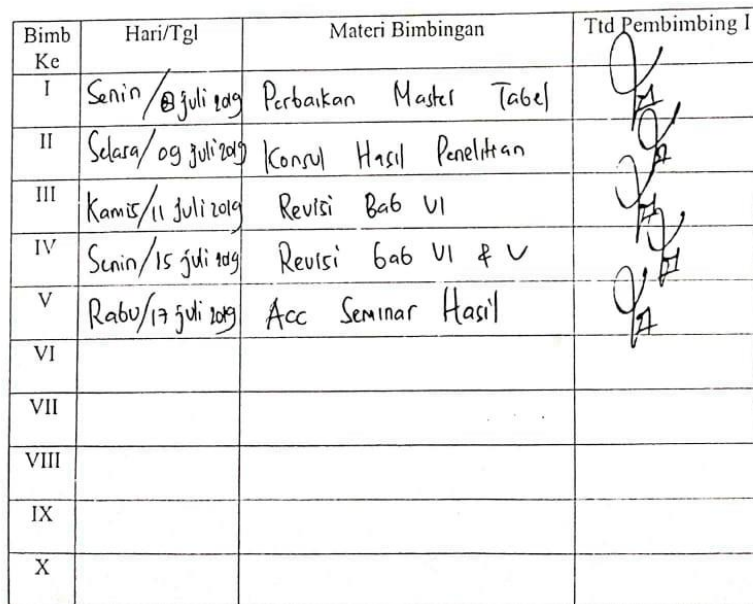 Bimb Ke Hari/Tgl Materi Bimbingan Ttd Pembimbing I
I Senin / 8 juli 2019 Perbaikan Master Tabel
II Selasa / 09 juli 2019 Konsul Hasil Penelitian
III Kamis / 11 Juli 2019 Revisi Bab VI
IV Senin / 15 juli 2019 Revisi bab VI & V
V Rabu / 17 juli 2019 Acc Seminar Hasil
VI
VII
VIII
IX
X